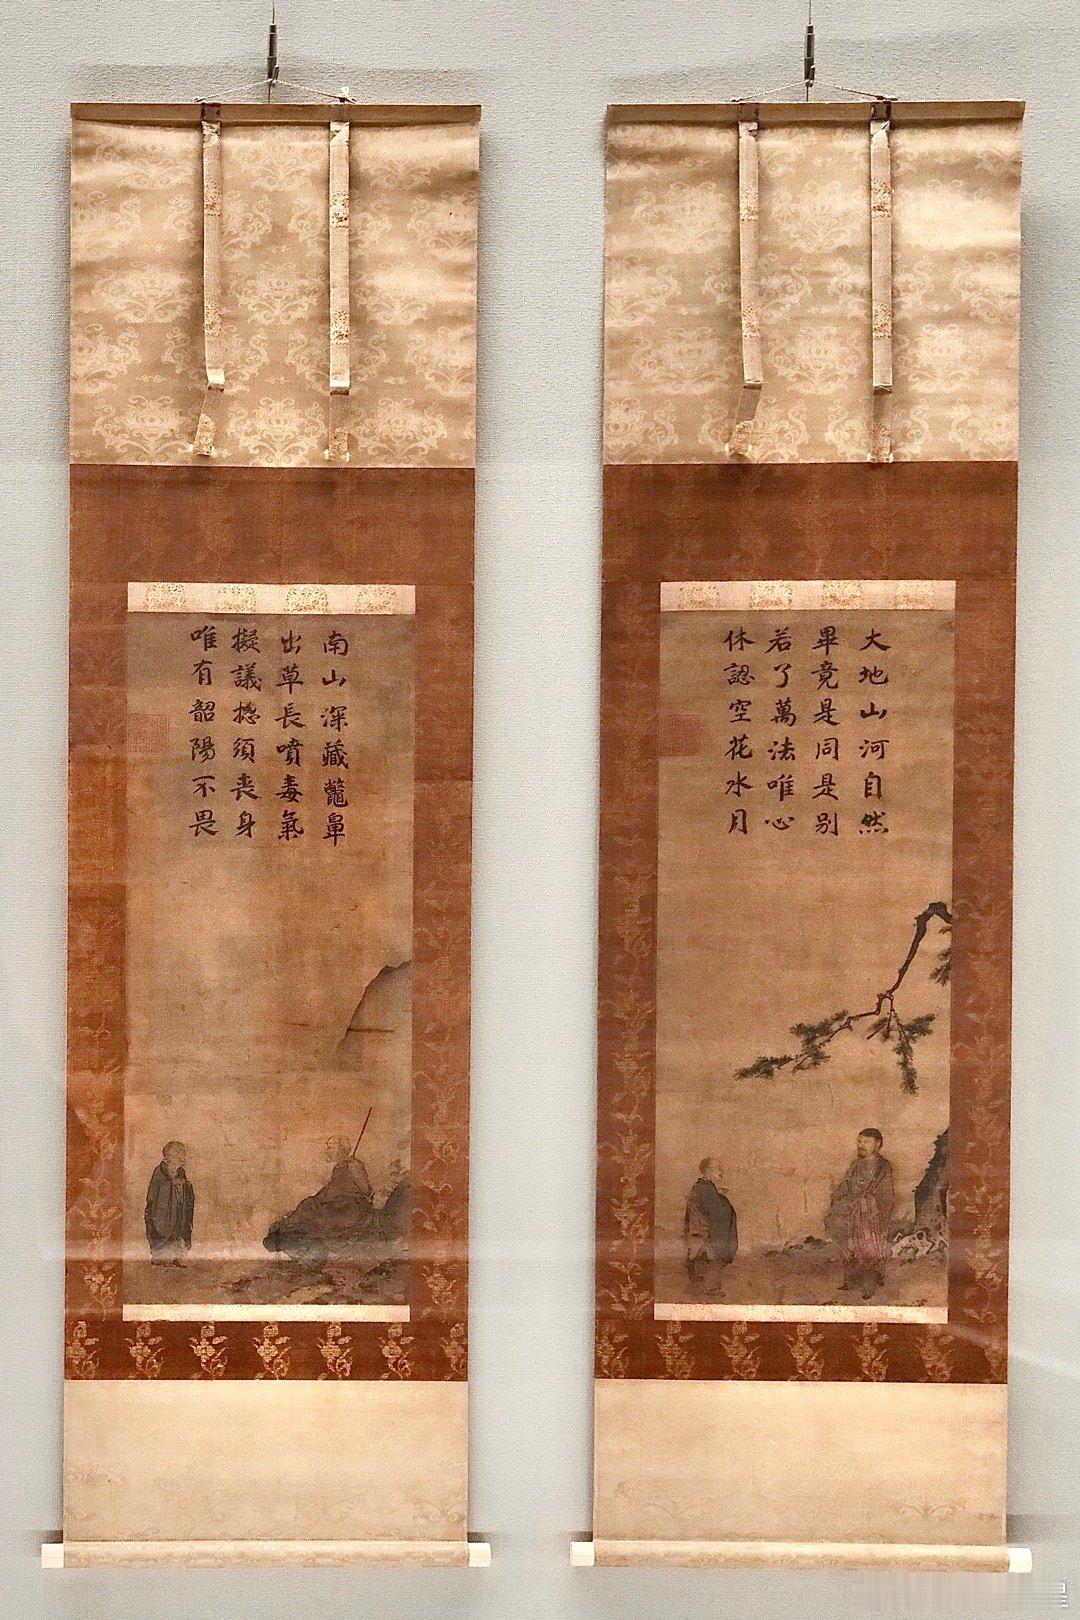 大地山河自然
畢竟是同是别
若了萬法唯心
休認空花水月
南山深藏鼈鼻
出草長噴毒氣
擬議揔須喪身
唯有韶陽不畏